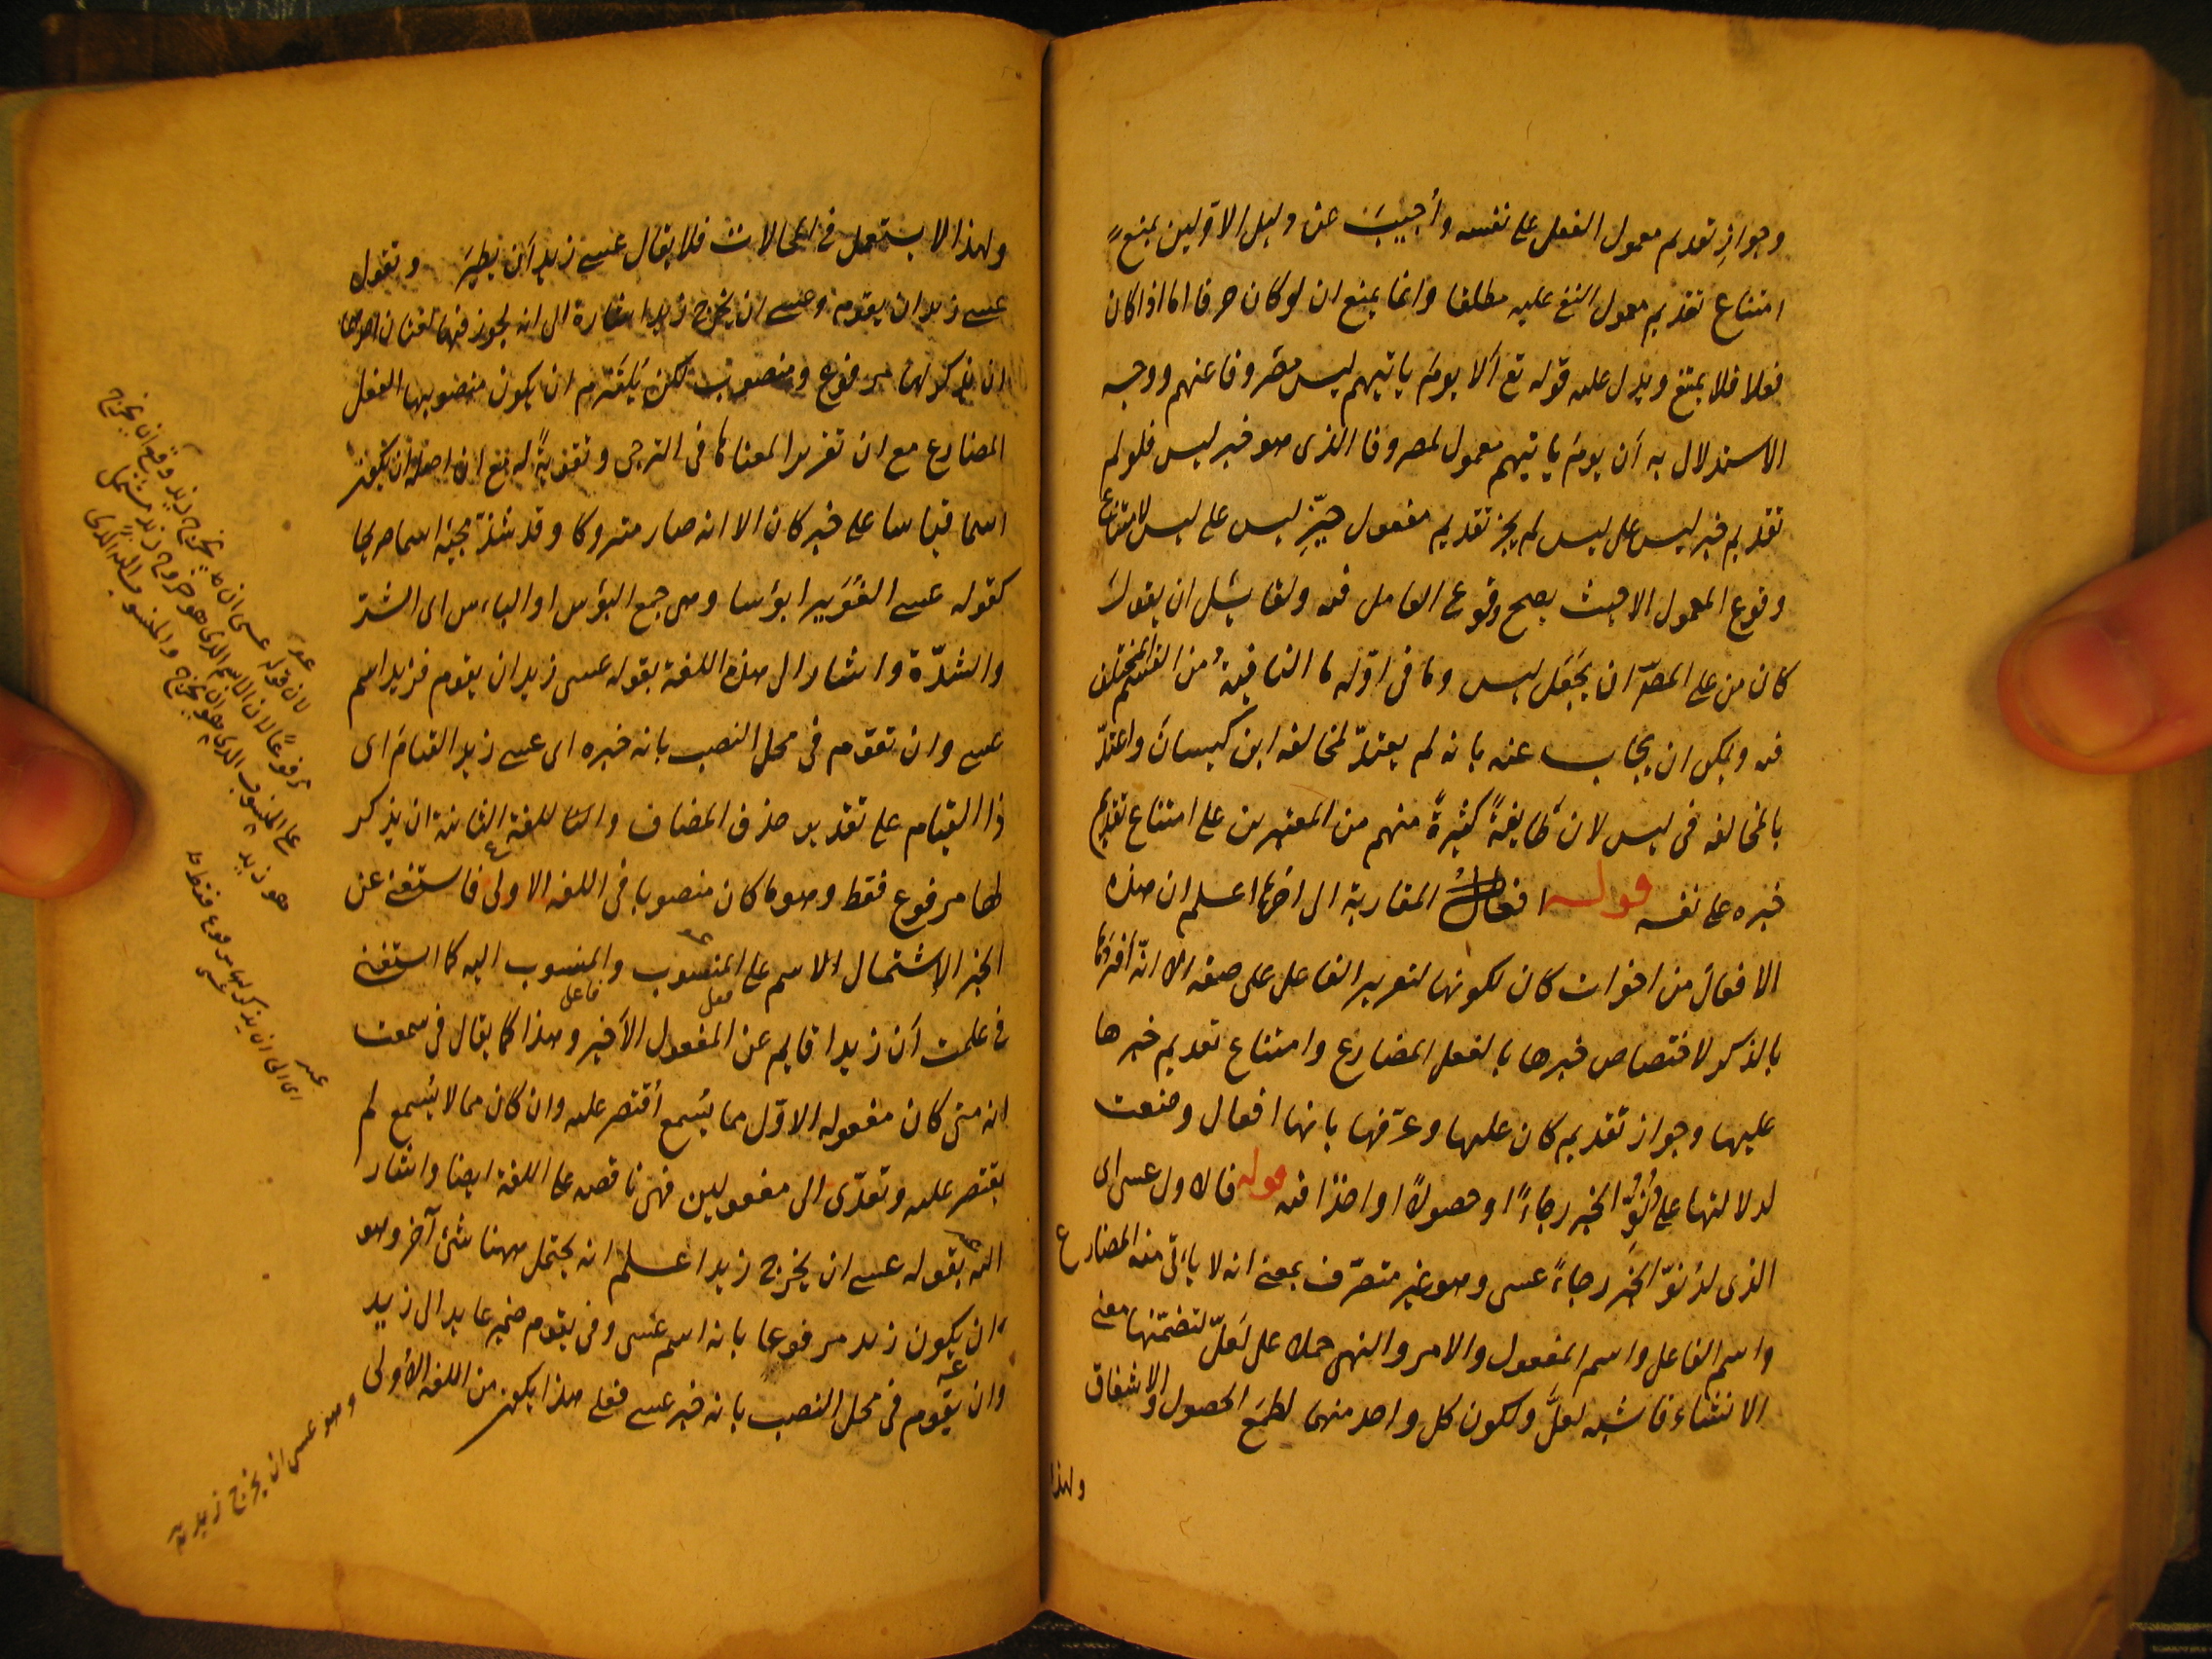 وجواز تقديم معمول الفعل على نفسه وأجيب عن دليل الاولين بمنع
امتناع تقديم معمول النفى عليه مطلقا وانما يمنع ان لو كان حرفا اما اذا كان
فعلا فلا يمتنع ويدل عليه قوله تع ألا يوم ياتيهم ليس مصروفا عنهم ووجه
الاستدلال به أن يوم ياتيهم معمول لمصروفا الذى هو خبر ليس فلو لم
تقديم خبر ليس على ليس لم يجز تقديم معمول خبر ليس على ليس لامتناع
وقوع المعمول الا حيث يصح وقوع العامل فيه ولقائل ان يقول
كان من على المصر ان يجعل ليس وما فى اوله ما النافية من القسم المختلف
فيه ويمكن ان يجاب عنه بانه لم يعتد لمخالفه ابن كيسان واعتد
بالمخالفه فى ليس لان طايفة كثيرة منهم من المعتبرين على امتناع تقديم
خبره على نفسه قوله افعال المقاربة الى اخرها اعلم ان هذه
الافعال من اخوات كان لكونها لتقرير الفاعل على صفه الا انه افردها
بالذكر لاختصاص خبرها بالفعل المضارع وامتناع تقديم خبرها
عليها وجواز تقديم كان عليها وعرفها بانها افعال وضعت
لدلالتها على دنو الخبر رجاءً او حصولاً او اخذا فيه قوله فالاول عسى اى
الذى لدنو الخبر رجاءً عسى وهو غير متصرف بمعنى انه لا يأتى منه المضارع
واسم الفاعل واسم المفعول والامر والنهى حملا على لعل لتضمنها معنى
الانشاء فاشبه لعل ولكون كل واحد منهما لطمع الحصول والاشفاق
ولهذا
ولهذا لا يستعمل فى المحالات فلا يقال عسى زيد أن يطير وتقول
عسى زيد ان يقوم وعسى ان يخرج زيد اشارة الى انه يجوز فيها لغتان احديهما
ان يذكر لها مرفوع ومنصوب لكن يلتزم ان يكون منصوبها الفعل
المضارع مع ان تقريرا لمعناها فى الترجى وتقوية له مع ان اصله ان يكون
اسما قياسا على خبر كان الا انه صار متروكا وقد شذ مجيئه اسما صريحا
كقوله عسى الغوير ابؤسا وهى جمع البؤس او الباس اى الشد
والشدة واشار الى هذه اللغة بقوله عسى زيد ان يقوم فزيد اسم
عسى وان تقوم فى محل النصب بانه خبره اى عسى زيد القيام اى
ذا القيام على تقدير حذف المضاف واللغة الثانية ان يذكر
لها مرفوع فقط وهو ما كان منصوبا فى اللغه الاولى فاستغنى عن
الخبر لاشتمال الاسم على المنسوب والمنسوب اليه كما استغنى
فى علمت أن زيدا قايم عن المفعول الأخير وهذا كما يقال فى سمعت
انه متى كان مفعوله الاول مما يُسمع أقتصر عليه وان كان مما لا يُسمع لم
يقتصر عليه وتعدى الى مفعولين فهى ناقصه على اللغة ايضا واشار
اليه بقوله عسى ان يخرج زيد اعلم انه يحتمل ههنا شئ آخر وهو
ان يكون زيد مرفوعا بانه اسم عسى وفى يقوم ضمير عايد الى زيد
وان يقوم فى محل النصب بانه خبر عسى فعلى هذا يكون من اللغه الأولى
وهو عسى ان يخرج زيد
فعل
فاعل
لان قوله عسى ان يخرج زيد وقع ان يخرج
مرفوعا لان الاسم الذى هو خروج زيد مشتمل
على المنسوب الذى هو ان يخرج والمنسوب اليه الذى
هو زيد
اى الى ان يذكر لها مرفوع فقط
عسى